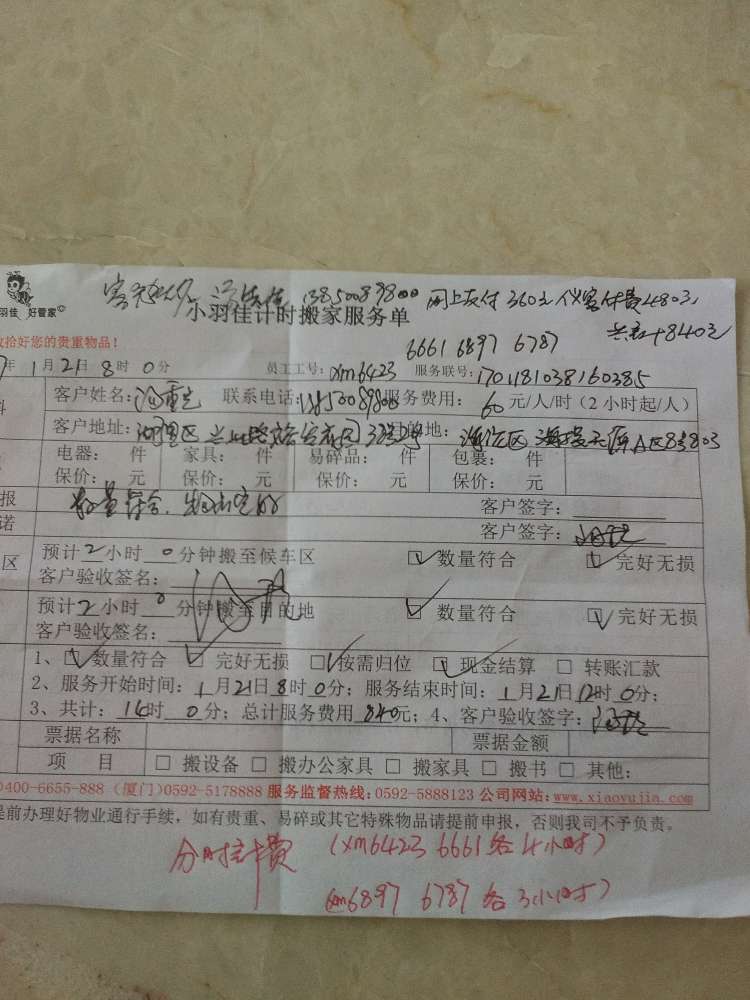 13850089800 网上支付360元 客付费480元
羽佳 好管家
小羽佳计时搬家服务单
共计840元
收拾好您的贵重物品!
6661 6897 6787
年1月21日8时0分 员工工号:xm6423 服务联号:1701181038160385
客户姓名: 联系电话:13850089800 服务费用:60元/人/时(2小时起/人)
客户地址:湖里区 目的地:海沧区
电器: 件 家具: 件 易碎品: 件 包裹: 件
保价: 元 保价: 元 保价: 元 保价: 元
报 数量符合. 客户签字:
诺 客户签字:
区 预计2小时0分钟搬至候车区 ☑数量符合 ☑完好无损
客户验收签名:
预计2小时0分钟搬至目的地 ☑数量符合 ☑完好无损
客户验收签名:
1、☑数量符合 ☑完好无损 ☑按需归位 ☑现金结算 □转账汇款
2、服务开始时间:1月21日8时0分;服务结束时间:1月21日12时0分;
3、共计:14时0分;总计服务费用840元;4、客户验收签字:
票据名称 票据金额
项 目 □搬设备 □搬办公家具 □搬家具 □搬书 □其他:
0400-6655-888(厦门)0592-5178888 服务监督热线:0592-5888123 公司网站:www.xiaoyujia.com
提前办理好物业通行手续,如有贵重、易碎或其它特殊物品请提前申报,否则我司不予负责。
分时计费 (xm6423 6661各4小时)
(xm6897 6787各3小时)